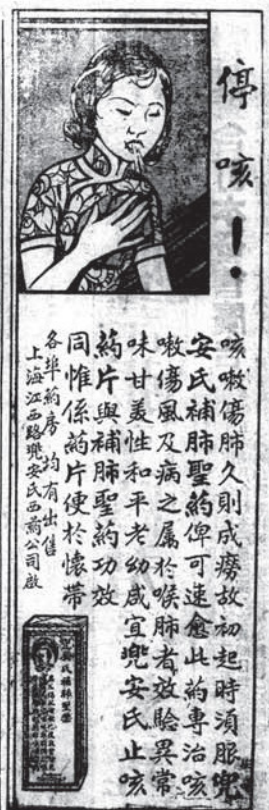 停咳！
咳嗽傷肺久則成癆故初起時須服兜
安氏補肺聖葯俾可速愈此葯專治咳
嗽傷風及病之属於喉肺者效驗異常
味甘美性和平老幼咸宜兜安氏止咳
葯片與補肺聖葯功效
同惟係葯片便於懷帶
各埠葯房均有出售
上海江西路兜安氏西葯公司啟
兜安氏補肺聖葯